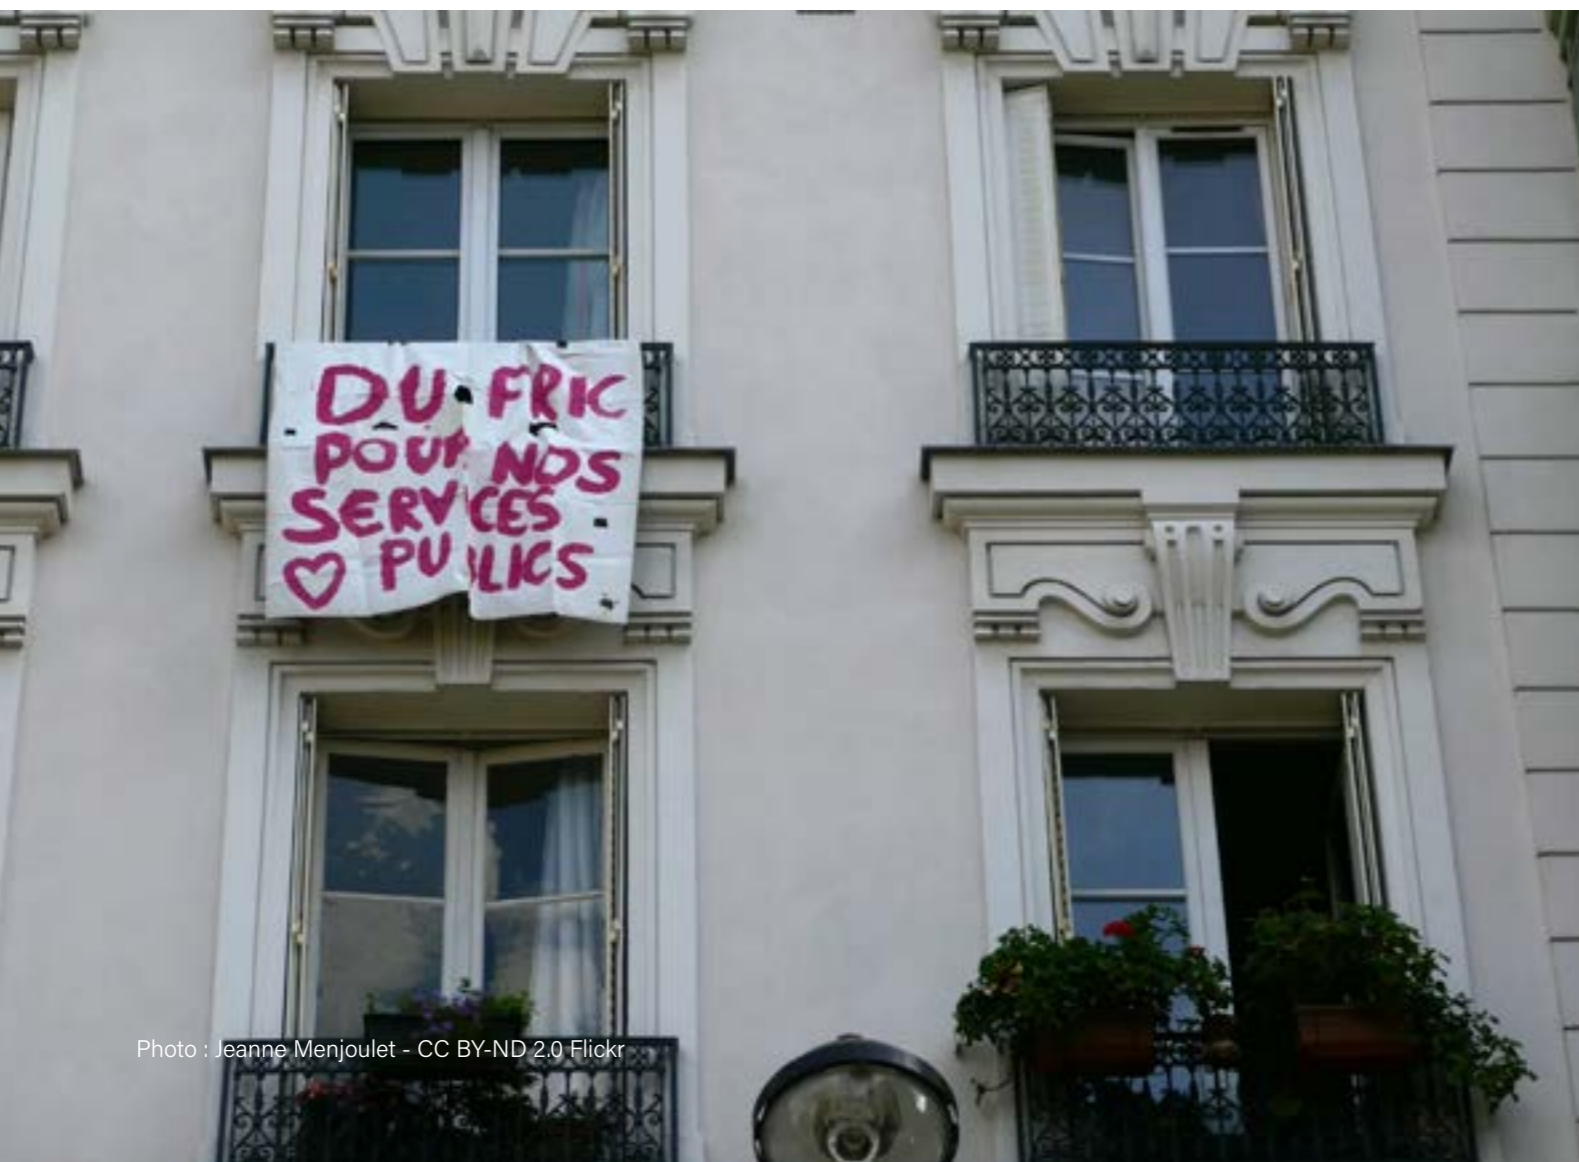 DU FRIC
POUR NOS
SERVICES
♡ PUBLICS
Photo : Jeanne Menjoulet - CC BY-ND 2.0 Flickr